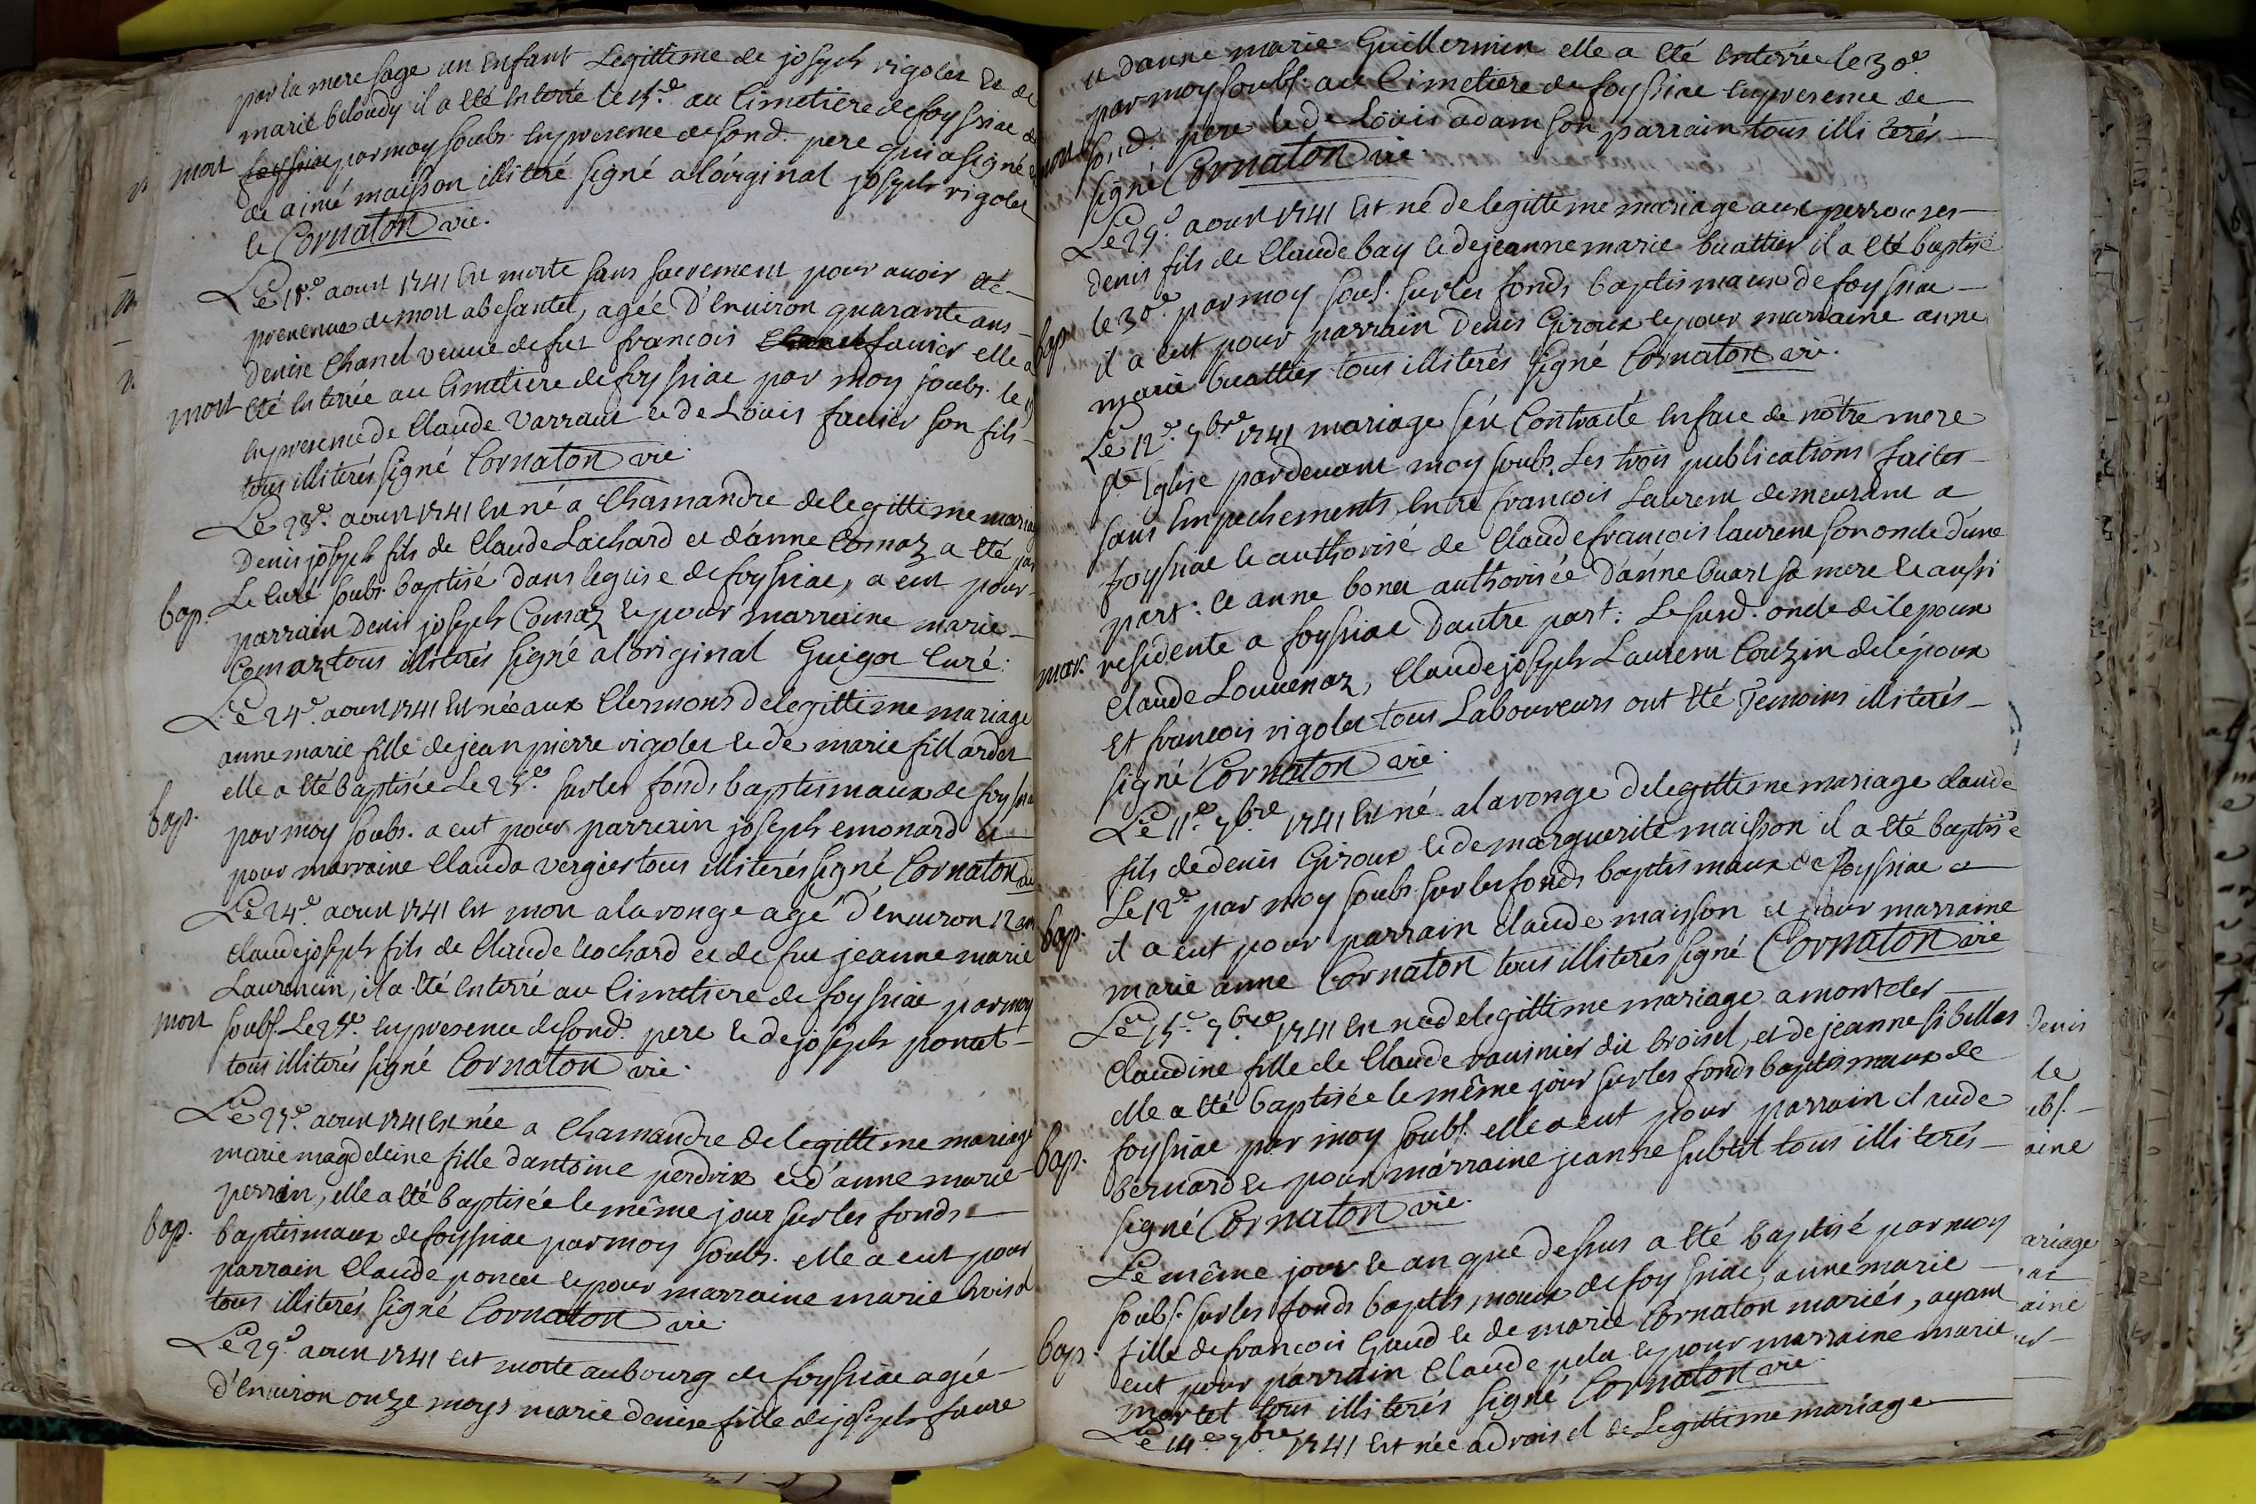 par la mere sage un enfant Legittime de joseph rigolet et de
marie beloudy il a eté enterré le 15.e au Cimetiere de foyssiac
mort foyssiac par moy soubs. en presence de sond. pere qui a signé et
de aimé maisson illiteré signé a l'órginal joseph rigolet
et Cornaton vic.
Le 18.e aoust 1741 est morte sans sacrement pour auoir eté
preuenue de mort a besantet, agée d'enuiron quarante ans
denise Chanel veuue de fut francois fauier elle a
mort eté enterrée au Cimetiere de foyssiac par moy soubs. le
en presence de Claude Varraut et de Loüis fauier son fils
tous illiterés signé Cornaton vic.
Le 23.e aoust 1741 est né a Chamandre de legittime mariage
Denis joseph fils de Claude Lachard et d'anne Comaz a eté par
bap. Le Curé soubs. baptisé dans leglise de foyssiac, a eut pour
parrain Denis joseph Comaz et pour marraine marie
Comaz tous illiterés signé a loriginal Guigot Curé.
Le 24.e aoust 1741 est née aux Clermons de legittime mariage
anne marie fille de jean pierre rigolet et de marie fillardet
elle a eté baptisée Le 25.e sur les fonds baptismaux de foyssiac
bap. par moy soubs. a eut pour parrain joseph emonard et
pour marraine Clauda vergier tous illiterés signé Cornaton vic
Le 24.e aoust 1741 est mort a la ronge agé d'enuiron 12 ans
Claude joseph fils de Claude Cochard et de fut jeanne marie
Laurencin, il a eté enterré au Cimetiere de foyssiac par moy
mort soubs. Le 25.e en presence de sond. pere et de joseph poncet
tous illiterés signé Cornaton vic.
Le 25.e aoust 1741 est née a Chamandre de legittime mariage
marie magdeleine fille d'antoine perdrix et d'anne marie
perrin, elle a eté baptisée le même jour sur les fonds
bap. baptismaux de foyssiac par moy soubs. elle a eut pour
parrain Claude poncet et pour marraine marie
tous illiterés signé Cornaton vic.
Le 29.e aoust 1741 est morte au bourg de foyssiac agée
d'enuiron onze moys marie denise fille de joseph faure
et d'anne marie Guillermin elle a eté enterrée le 30.e
par moy soubs. au Cimetiere de foyssiac en presence de
mort sond. pere et de Loüis adam son parrain tous illiterés
signé Cornaton vic.
Le 29.e aoust 1741 est né de legittime mariage aux perrouzes
denis fils de Claude bay et de jeanne marie buattier il a eté baptisé
le 30.e par moy soubs. sur les fonds baptismaux de foyssiac
bap. il a eut pour parrain Denis Giroux et pour marraine anne
marie buattier tous illiterés signé Cornaton vic.
Le 12.e 7bre 1741 mariage s'ést Contracté en face de nôtre mere
ste Eglise pardeuant moy soubs. Les trois publications faites
sans empechements, entre francois Laurent demeurant a
foyssiac et authorisé de Claude francois laurent son oncle d'une
part: et anne bonet authorisée d'anne buart sa mere et aussi
mar. residente a foyssiac d'autre part: Le susd. oncle de lepoux
Claude Louuenaz, Claude joseph Laurent Couzin de lépoux
Et francois rigolet tous Laboureurs ont eté temoins illiterés
signé Cornaton vic.
Le 11.e 7bre 1741 est né a la ronge de legittime mariage claude
fils de denis Giroux et de marguerite maisson il a eté baptisé
Le 12.e par moy soubs. sur les fonds baptismaux de foyssiac
bap. il a eut pour parrain claude maisson et pour marraine
marie anne Cornaton tous illiterés signé Cornaton vic
Le 15.e 7bre 1741 est née de legittime mariage a montcler
Claudine fille de Claude dit broisel, et de jeanne sibelles
elle a eté baptisée le même jour sur les fonds baptismaux de
bap. foyssiac par moy soubs. elle a eut pour parrain claude
bernard et pour marraine jeanne subtil tous illiterés
signé Cornaton vic.
Le même jour et an que dessus a eté baptisé par moy
soubs. sur les fonds baptismaux de foyssiac, anne marie
bap. fille de francois Guud et de marie Cornaton mariés, ayant
eut pour parrain Claude pelet et pour marraine marie
mortel tous illiterés signé Cornaton vic.
Le 14.e 7bre 1741 est née a broisel de Legittime mariage